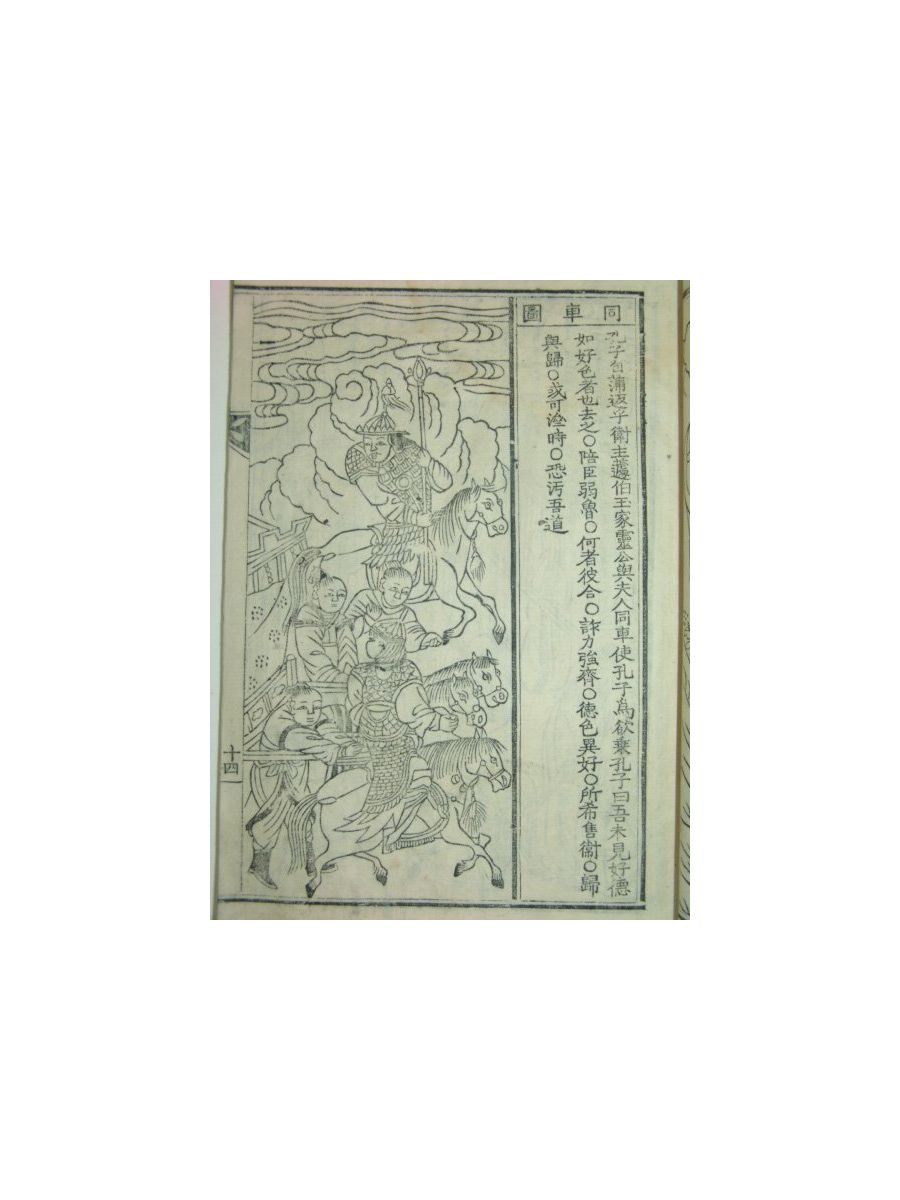 同車圖
孔子自蒲返乎衛主蘧伯玉家靈公與夫人同車使孔子爲欲乗孔子曰吾未見好德
如好色者也去之○陪臣弱魯○何者彼合○詐力強齊○德色異好○所希售衛○歸
與歸○或可淑時○恐汚吾道
十四